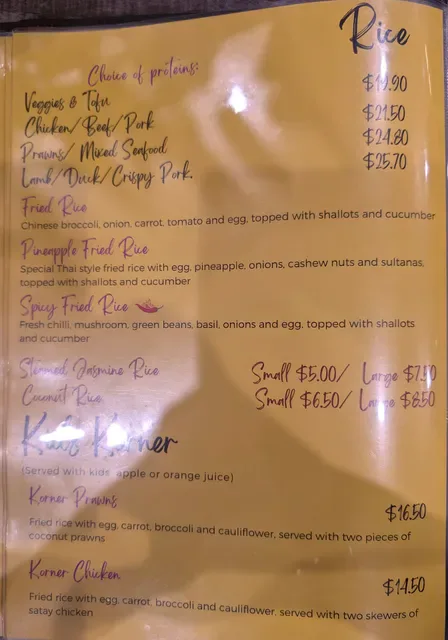 Rice
Choice of proteins:
Veggies & Tofu $19.90
Chicken/Beef/Pork $21.50
Prawns/ Mixed Seafood $24.80
Lamb/Duck/Crispy Pork. $25.70
Fried Rice
Chinese broccoli, onion, carrot, tomato and egg, topped with shallots and cucumber
Pineapple Fried Rice
Special Thai style fried rice with egg, pineapple, onions, cashew nuts and sultanas,
topped with shallots and cucumber
Spicy Fried Rice
Fresh chilli, mushroom, green beans, basil, onions and egg, topped with shallots
and cucumber
Steamed Jasmine Rice Small $5.00/ Large $7.50
Coconut Rice Small $6.50/ Large $8.50
Kids Korner
(Served with kids apple or orange juice)
Korner Prawns $16.50
Fried rice with egg, carrot, broccoli and cauliflower, served with two pieces of
coconut prawns
Korner Chicken $14.50
Fried rice with egg, carrot, broccoli and cauliflower, served with two skewers of
satay chicken